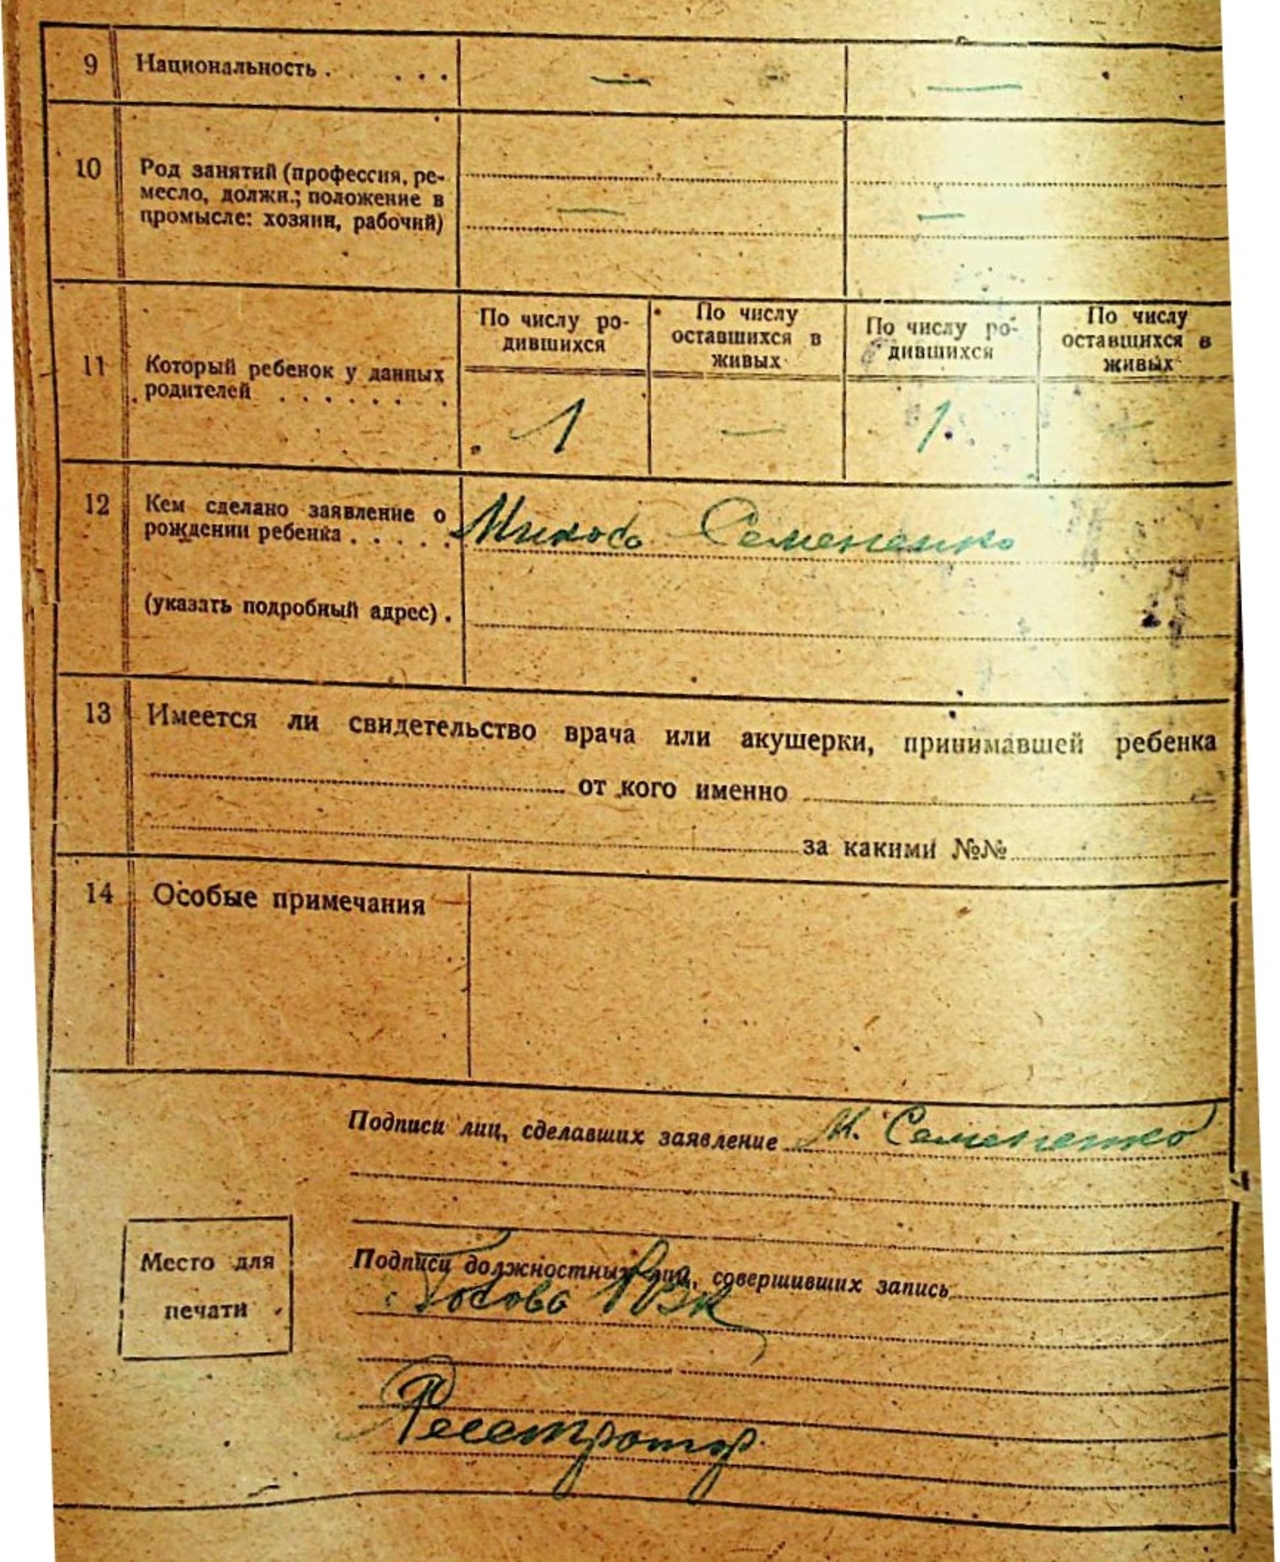 9 Национальность . . . . . — —
10 Род занятий (профессия, ре-
месло, должн.; положение в — —
промысле: хозяин, рабочий)
По числу ро-
дившихся
По числу
оставшихся в
живых
По числу ро-
дившихся
По числу
оставшихся в
живых
11 Который ребенок у данных
родителей . . . . . . . . 1 — 1.
12 Кем сделано заявление о
рождении ребенка . . . . . Семененко
(указать подробный адрес) .
13 Имеется ли свидетельство врача или акушерки, принимавшей ребенка
от кого именно
за какими №№
14 Особые примечания
Подписи лиц, сделавших заявление М. Семененко
Подписи должностных лиц, совершивших запись
Место для
печати
Реестратор